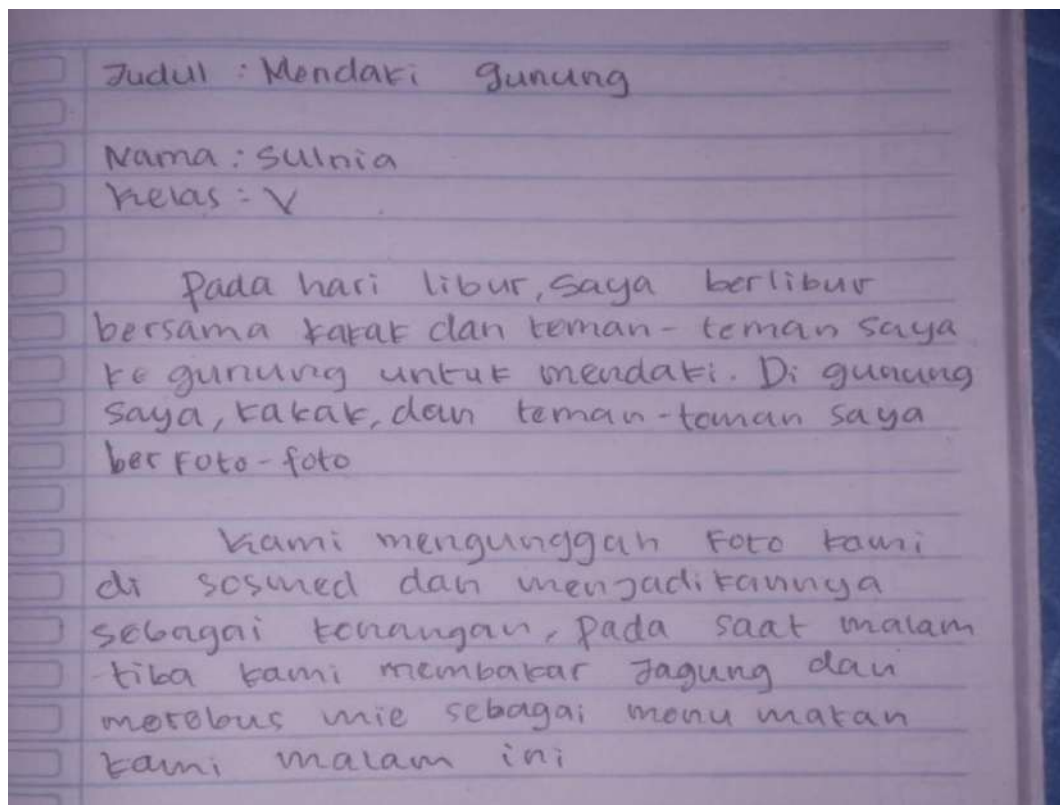 Judul : Mendaki gunung
Nama : Sulnia
Kelas : V
Pada hari libur, saya berlibur
bersama kakak dan teman-teman saya
ke gunung untuk mendaki. Di gunung
saya, kakak, dan teman-teman saya
ber foto-foto
Kami mengunggah foto kami
di sosmed dan menjadikannya
sebagai kenangan, pada saat malam
tiba kami membakar Jagung dan
merebus mie sebagai menu makan
kami malam ini